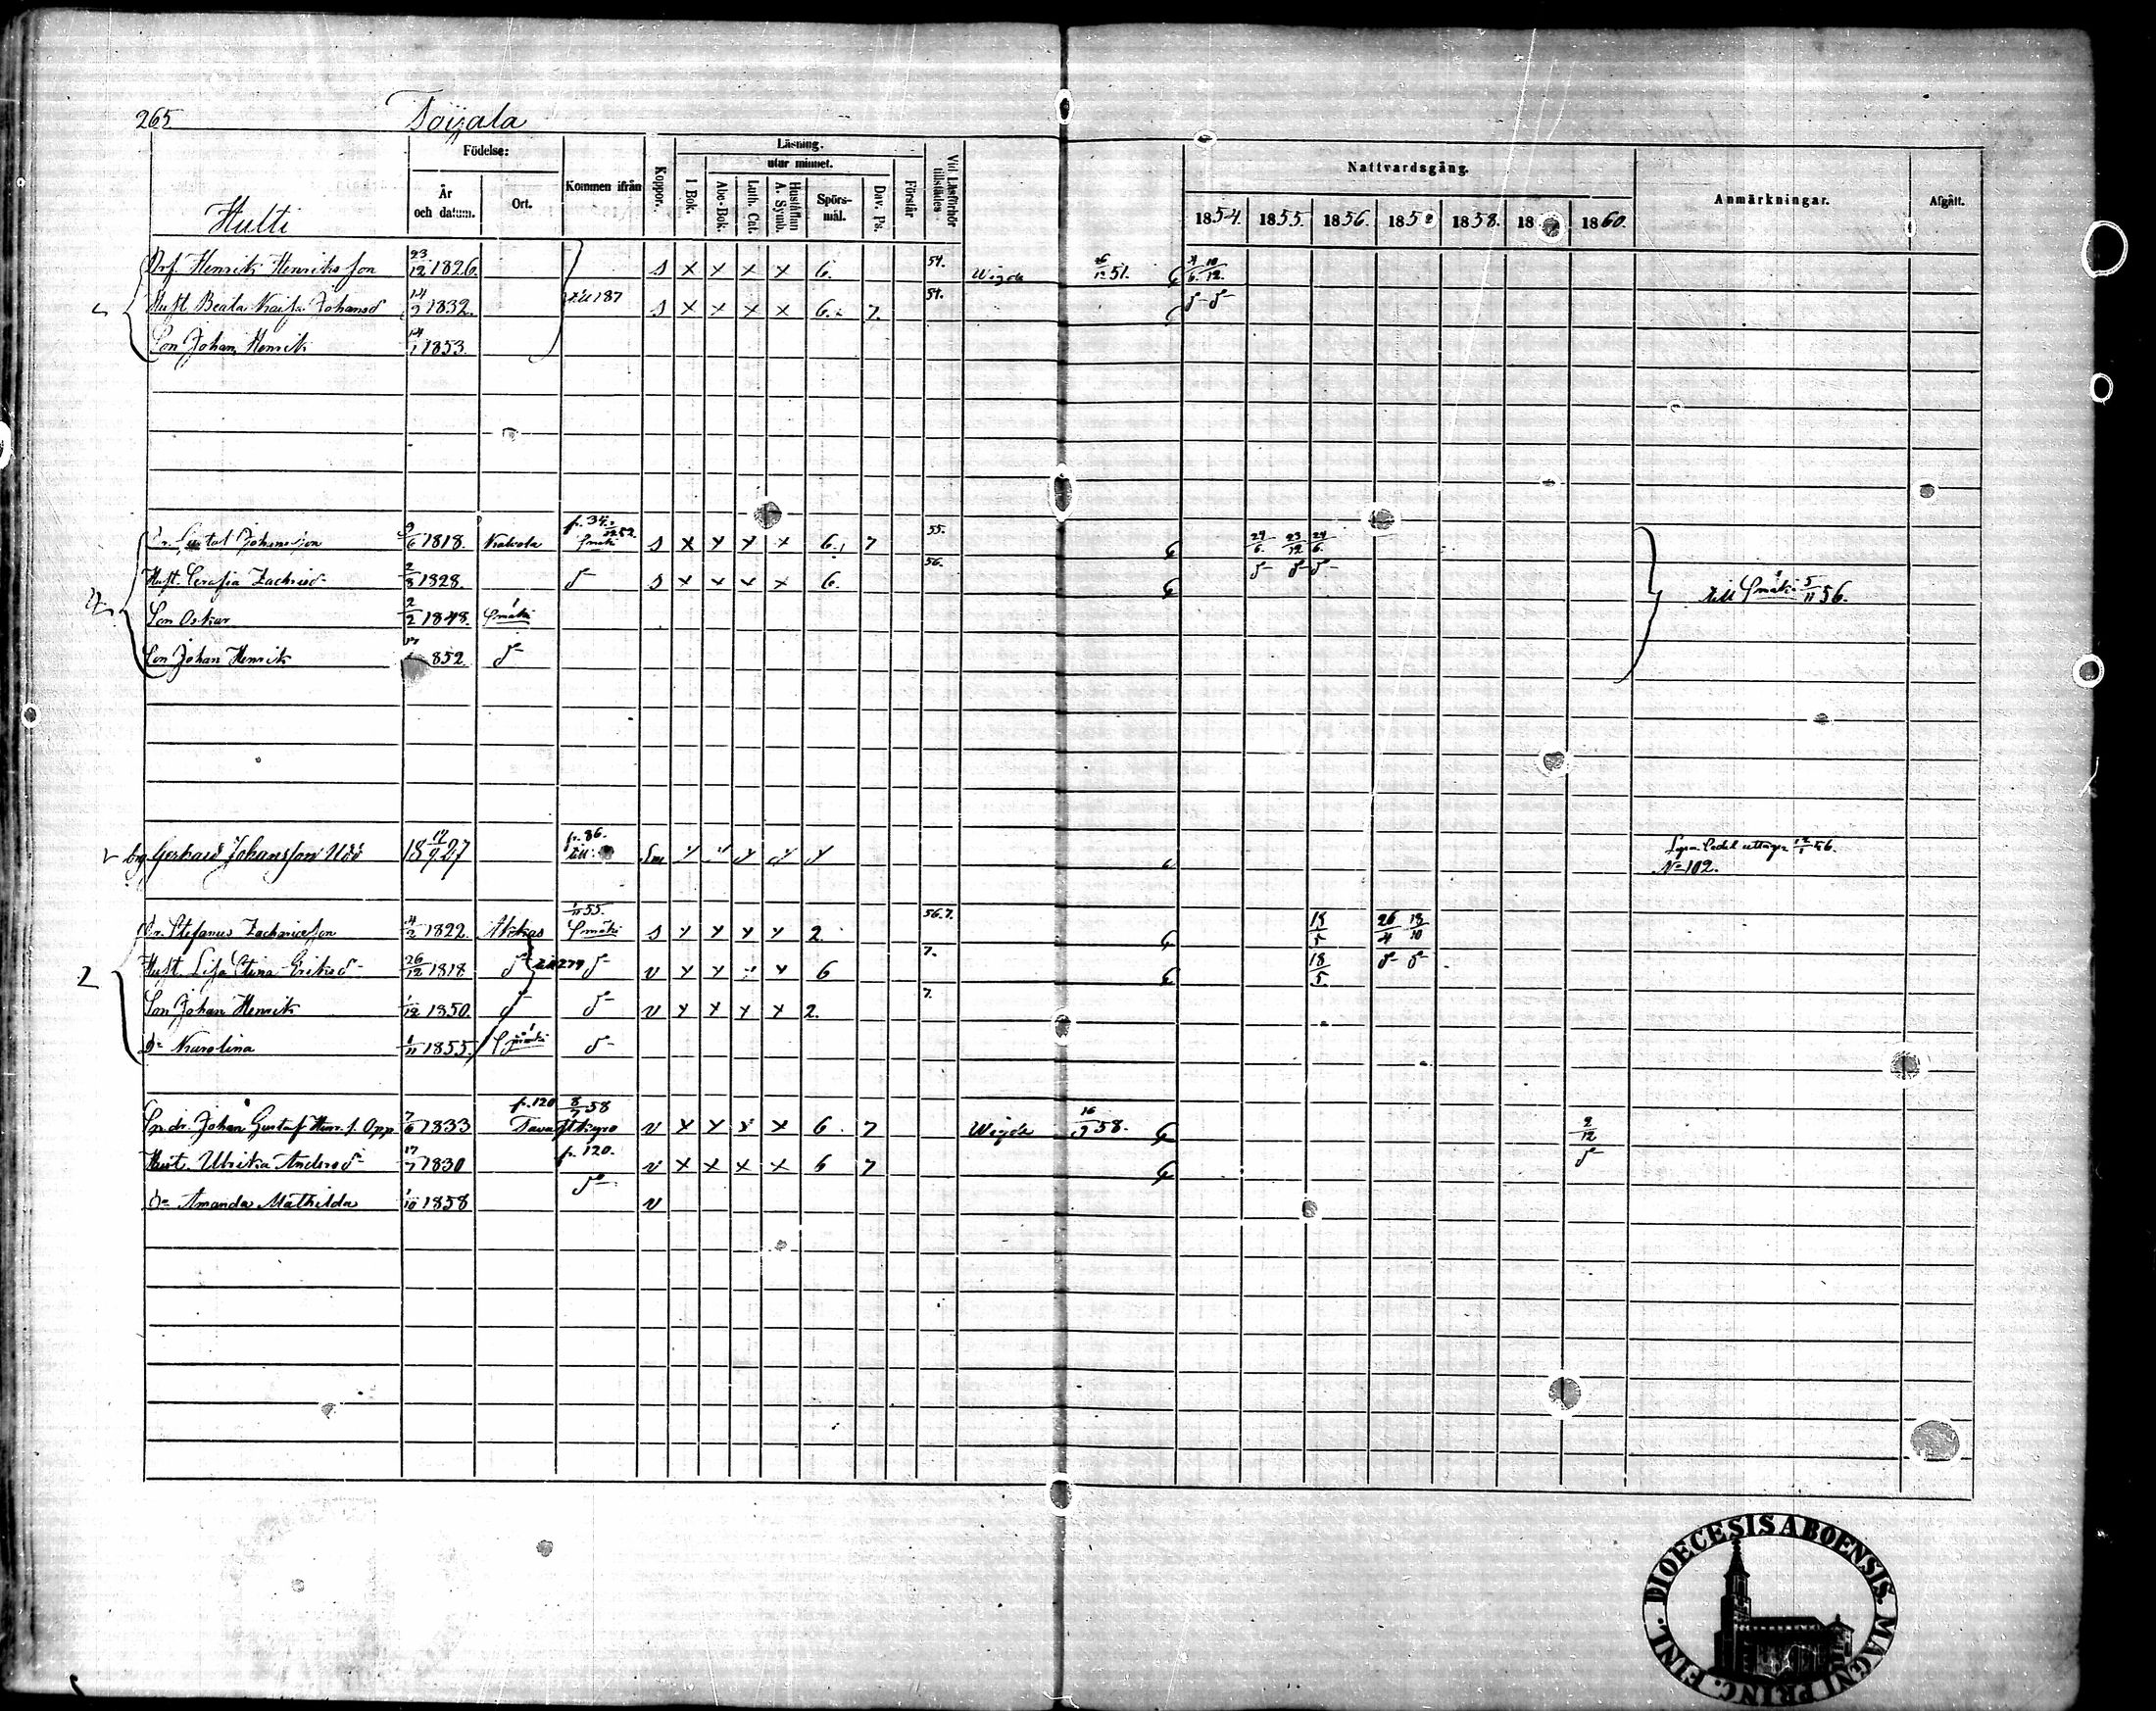 265 Toijala
Hulti
Födelse:
År och datum.
Ort.
Kommen ifrån
Koppor.
Läsning.
utur minnet.
I Bok.
Abc-Bok.
Luth. Cat.
Hustaflan A. Symb.
Spörs-mål.
Dav. Ps.
Förstår
Vid Läsförhör tillstädes.
Nattvardsgång.
1854. 1855. 1856. 185 1858. 18 1860.
Anmärkningar.
Afgått.
Henrik Henriksson 23/12 1826. s x x x x 6. 54. Wigde 51.
Hust Beata Kaisa Johansd 14/9 1832. till 187 s x x x x 6. 7. 54.
Son Johan Henrik 14/1 1853.
Dr. Gustaf Johansson 1818. Kalvola p. 34. s x x x x 6. 7 55. 24/6. 23/12 24/6.
Hust. Serafia Zachrisd 2/8 1828. d- s x x x x 6. 56. d- d- d- till Smäki 5/11 56.
Son Oskar 2/2 1848. Smäki
Son Johan Henrik 852 d-
Gerhard Johansson Udd 18 27 p. 86. till: N° 102.
Dr. Stefanus Zachariesson 4/2 1822. Akkas 1/11 55. Smäki s x x x x 2. 56.7. 18/5 26/4 18/10
Hust. Lisa Stina Eriksd- 26/12 1818 d- till 279 d- v x x x x 6 7. 18/5. d- d-
Son Johan Henrik 1/12 1850 d- d- v x x x x 2. 7.
Dr Karolina 1/11 1855. Smäki d-
Johan Gustaf Henr. s. Opp 7/6 1833 p. 120 8/7 58 Tavastkyro v x x x x 6. 7 Wigde 16/9 58. 2/12
Hust. Ulrika Andersd- 17/7 1830 p. 120. d- v x x x x 6 7 d-
Dr Amanda Mathilda 1/10 1858 v
DIOECESIS ABOENSIS. MAGNI PRINC. FINL.